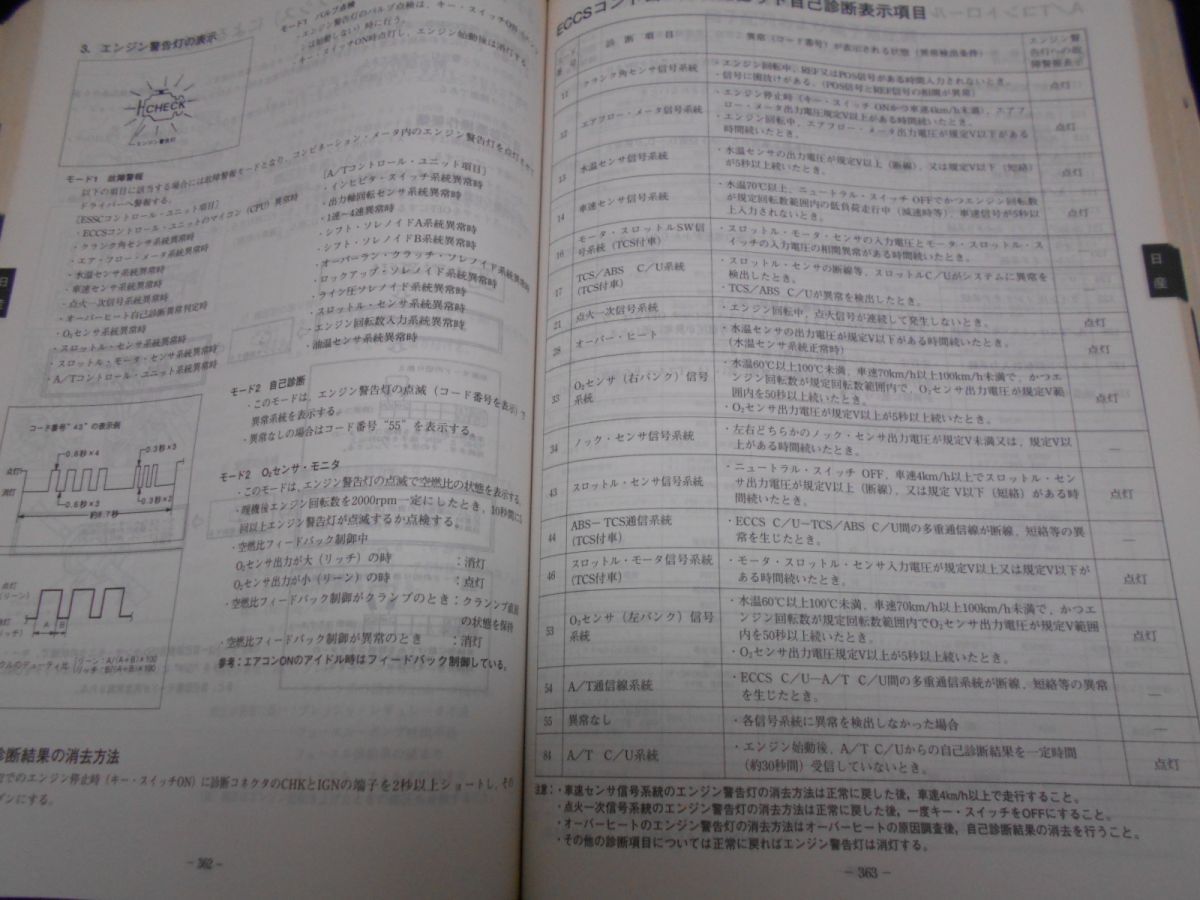 3. エンジン警告灯の表示
CHECK
エンジン警告灯
モード1 バルブ点検
・エンジン警告灯のバルブ点検は、キー・スイッチON
は始動しない）時に行う。
・キー・スイッチON時点灯し、エンジン始動後は消灯する。
モード1 故障警報
以下の項目に該当する場合には故障警報モードとなり、コンビネーション・メータ内のエンジン警告灯を点灯させて
ドライバーへ警報する。
[ESSCコントロール・ユニット項目]
・ECCSコントロール・ユニットのマイコン（CPU）異常時
・クランク角センサ系統異常時
・エア・フロー・メータ系統異常時
・水温センサ系統異常時
・車速センサ系統異常時
・点火一次信号系統異常時
・オーバーヒート自己診断異常判定時
・O₂センサ系統異常時
・スロットル・センサ系統異常時
・スロットル・モータ・センサ系統異常時
・A/Tコントロール・ユニット系統異常時
[A/Tコントロール・ユニット項目]
・インヒビタ・スイッチ系統異常時
・出力軸回転センサ系統異常時
・1速～4速異常時
・シフト・ソレノイドA系統異常時
・シフト・ソレノイドB系統異常時
・オーバーラン・クラッチ・ソレノイド系統異常時
・ロックアップ・ソレノイド系統異常時
・ライン圧ソレノイド系統異常時
・スロットル・センサ系統異常時
・エンジン回転数入力系統異常時
・油温センサ系統異常時
コード番号“43”の表示例
0.6秒×4
0.3秒×3
点灯
消灯
0.6秒×3
0.3秒×2
約8.7秒
点灯
リーン）
消灯
リッチ）
A
B
クルのデューティル（リーン：A/(A+B)×100
リッチ：B/(A+B)×100
モード2 自己診断
・このモードは、エンジン警告灯の点滅（コード番号を表示）で
異常系統を表示する。
・異常なしの場合はコード番号“55”を表示する。
モード2 O₂センサ・モニタ
・このモードは、エンジン警告灯の点滅で空燃比の状態を表示する。
・暖機後エンジン回転数を2000rpm一定にしたとき、10秒間に5
回以上エンジン警告灯が点滅するか点検する。
・空燃比フィードバック制御中
O₂センサ出力が大（リッチ）の時 ：消灯
O₂センサ出力が小（リーン）の時 ：点灯
・空燃比フィードバック制御がクランプのとき：クランンプ直前
の状態を保持
・空燃比フィードバック制御が異常のとき ：消灯
参考：エアコンONのアイドル時はフィードバック制御している。
診断結果の消去方法
でのエンジン停止時（キー・スイッチON）に診断コネクタのCHKとIGNの端子を2秒以上ショートし、その
ンにする。
－362－
ット自己診断表示項目
診断項目 異常（コード番号）が表示される状態（異常検出条件） エンジン警
告灯への故
障警報表示
11 クランク角センサ信号系統 ・エンジン回転中、REF又はPOS信号がある時間入力されないとき。 点灯
・信号に歯抜けがある。（POS信号とREF信号の相関が異常）
12 エアフロー・メータ信号系統 ・エンジン停止時（キー・スイッチ ONかつ車速4km/h未満）、エアフ 点灯
ロー・メータ出力電圧規定V以上がある時間続いたとき。
・エンジン回転中、エアフロー・メータ出力電圧が規定V以下がある
時間続いたとき。
13 水温センサ信号系統 ・水温センサの出力電圧が規定V以上（断線）、又は規定V以下（短絡） 点灯
が5秒以上続いたとき。
14 車速センサ信号系統 ・水温70℃以上、ニュートラル・スイッチ OFFでかつエンジン回転数 点灯
が規定回転数範囲内の低負荷走行中（減速時等）、車速信号が5秒以
上入力されないとき。
16 モータ・スロットルSW信 ・スロットル・モータ・センサの入力電圧とモータ・スロットル・ス
号系統（TCS付車） イッチの入力電圧の相関異常がある時間続いたとき。
17 TCS/ABS C/U系統 ・スロットル・センサの断線等、スロットルC/Uがシステムに異常を
（TCS付車） 検出したとき。
・TCS/ABS C/Uが異常を検出したとき。
21 点火一次信号系統 ・エンジン回転中、点火信号が連続して発生しないとき。 点灯
28 オーバー・ヒート ・水温センサの出力電圧が規定V以下がある時間続いたとき。 点灯
（水温センサ系統正常時）
33 O₂センサ（右バンク）信号 ・水温60℃以上100℃未満、車速70km/h以上100km/h未満で、かつエ 点灯
系統 ンジン回転数が規定回転数範囲内で、O₂センサ出力電圧が規定V範
囲内を50秒以上続いたとき。
・O₂センサ出力電圧が規定V以上が5秒以上続いたとき。
34 ノック・センサ信号系統 ・左右どちらかのノック・センサ出力電圧が規定V未満又は、規定V以 ―
上がある時間続いたとき。
43 スロットル・センサ信号系統 ・ニュートラル・スイッチ OFF、車速4km/h以上でスロットル・セン 点灯
サ出力電圧が規定V以上（断線）、又は規定 V以下（短絡）がある時
間続いたとき。
44 ABS－TCS通信系統 ・ECCS C/U－TCS/ABS C/U間の多重通信線が断線、短絡等の異 ―
（TCS付車） 常を生じたとき。
46 スロットル・モータ信号系統 ・モータ・スロットル・センサ入力電圧が規定V以上又は規定V以下が 点灯
（TCS付車） ある時間続いたとき。
53 O₂センサ（左バンク）信号 ・水温60℃以上100℃未満、車速70km/h以上100km/h未満で、かつエ 点灯
系統 ンジン回転数が規定回転数範囲内でO₂センサ出力電圧が規定V範囲
内を50秒以上続いたとき。
・O₂センサ出力電圧規定V以上が5秒以上続いたとき。
54 A/T通信線系統 ・ECCS C/U－A/T C/U間の多重通信系統が断線、短絡等の異常 ―
を生じたとき。
55 異常なし ・各信号系統に異常を検出しなかった場合 ―
84 A/T C/U系統 ・エンジン始動後、A/T C/Uからの自己診断結果を一定時間 点灯
（約30秒間）受信していないとき。
注意：・車速センサ信号系統のエンジン警告灯の消去方法は正常に戻した後，車速4km/h以上で走行すること。
・点火一次信号系統のエンジン警告灯の消去方法は正常に戻した後，一度キー・スイッチをOFFにすること。
・オーバーヒートのエンジン警告灯の消去方法はオーバーヒートの原因調査後，自己診断結果の消去を行うこと。
・その他の診断項目については正常に戻ればエンジン警告灯は消灯する。
－363－
日産
日産